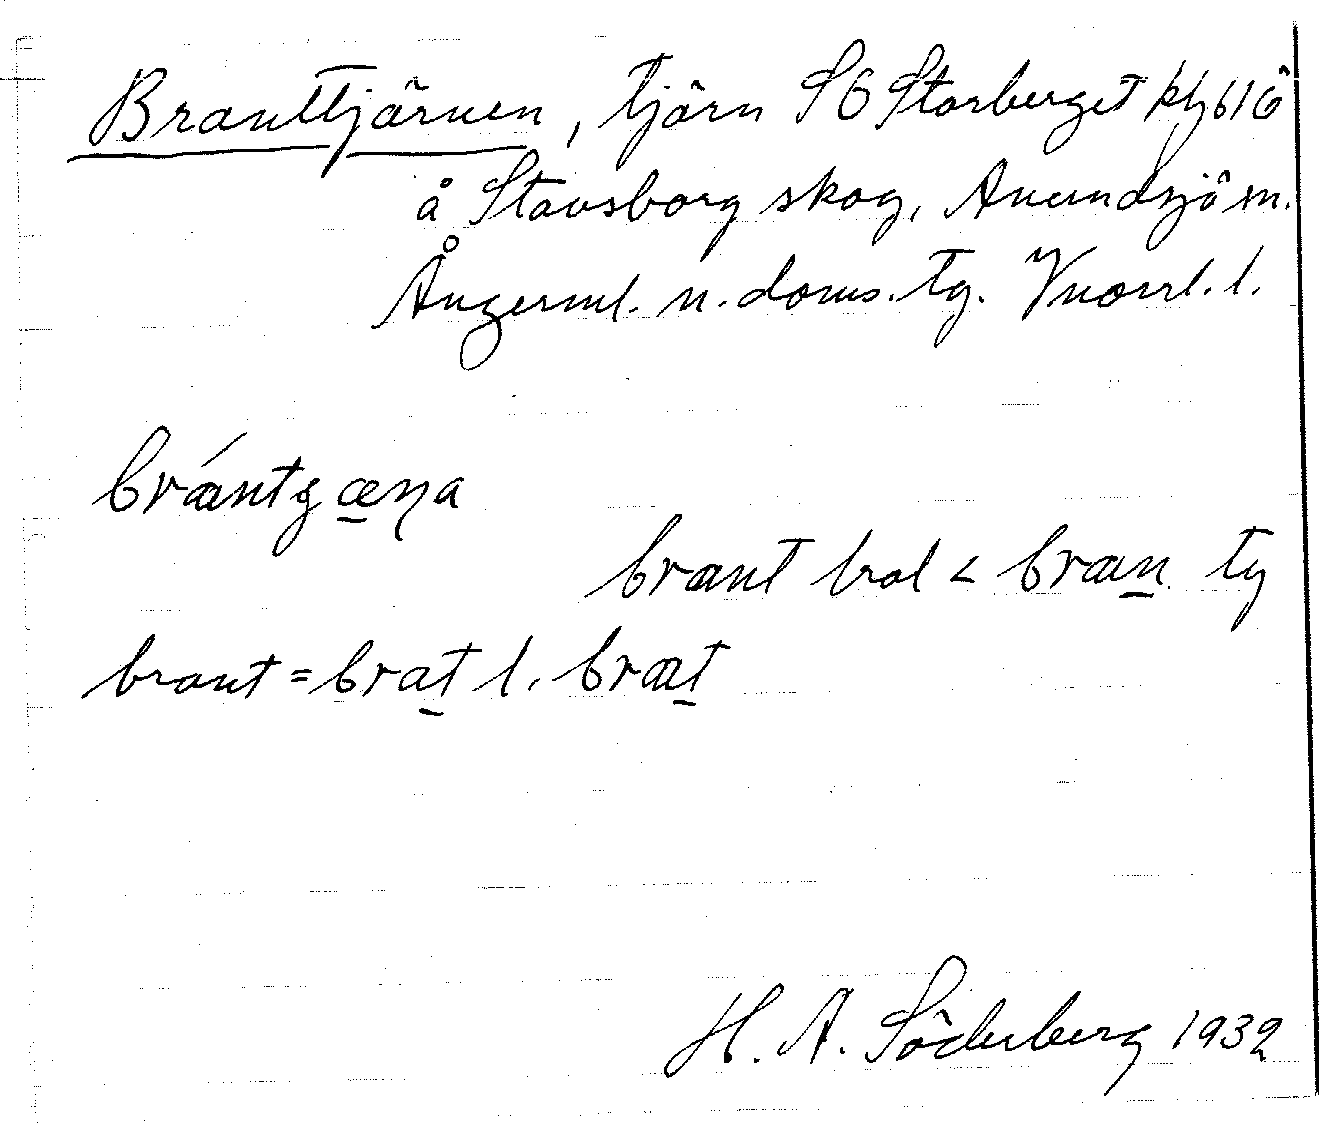 Branttjärnen, tjärn SÖ Storberget kbl 61 Ö
å Stavsborg skog, Anundsjö sn.
Ångerml. n. doms. tg. Vnorrl. l.
brǽntgæ̱ɳa
brænt bol < bræṉ ty
brant = braṯ l. bræṯ
H. A. Söderberg 1932